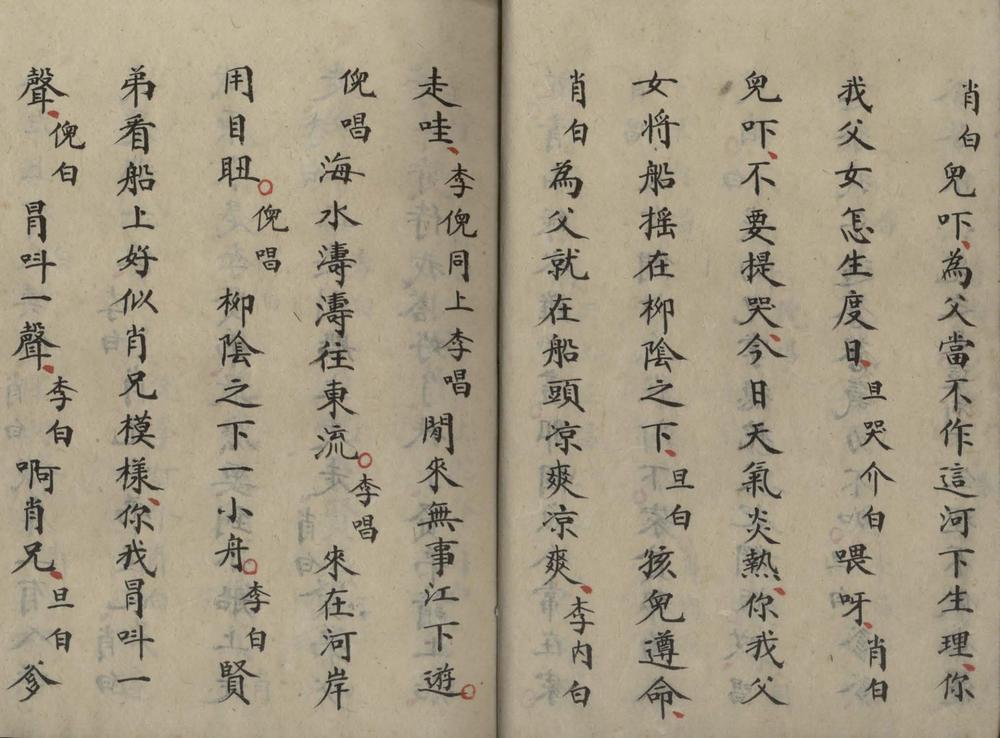 肖白兒吓、為父當不作這河下生理、你
我父女怎生度日、旦哭介白喂呀、肖白
兒吓、不要提哭、今日天氣炎熱、你我父
女將船摇在柳陰之下、旦白孩兒遵命、
肖白為父就在船頭凉爽凉爽、李内白
走哇、李倪同上李唱閒來無事江下遊。
倪唱海水濤濤往東流。李唱來在河岸
用目瞅。倪唱柳陰之下一小舟。李白賢
弟看船上好似肖兄模樣、你我冒呌一
聲、倪白冒呌一聲、李白啊肖兄、旦白爹